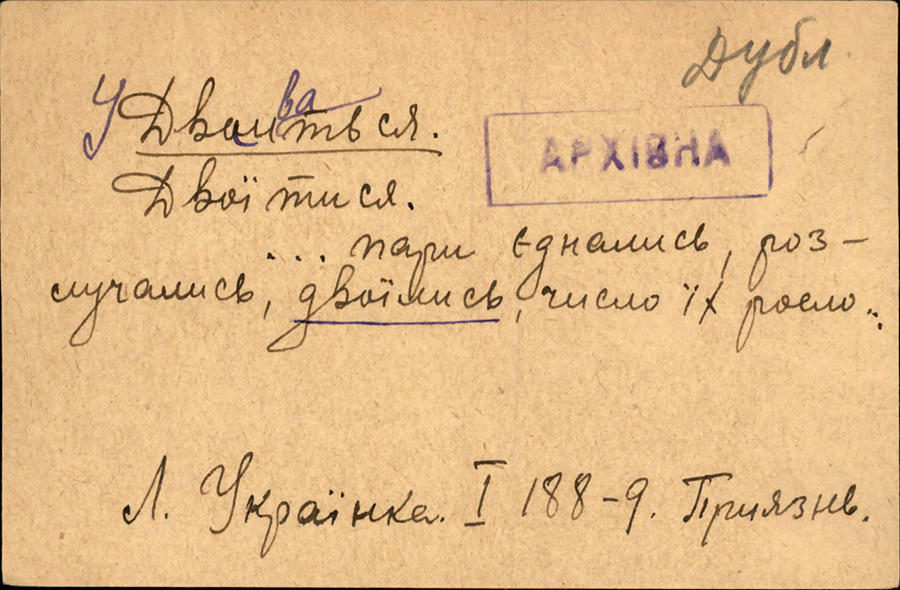 Дубл
УДвоиваться.
АРХІВНА
Двоїтися.
... пари єднались, роз-
лучались, двоїлись, число їх росло..
Л. Українка. I 188-9. Приязнь.